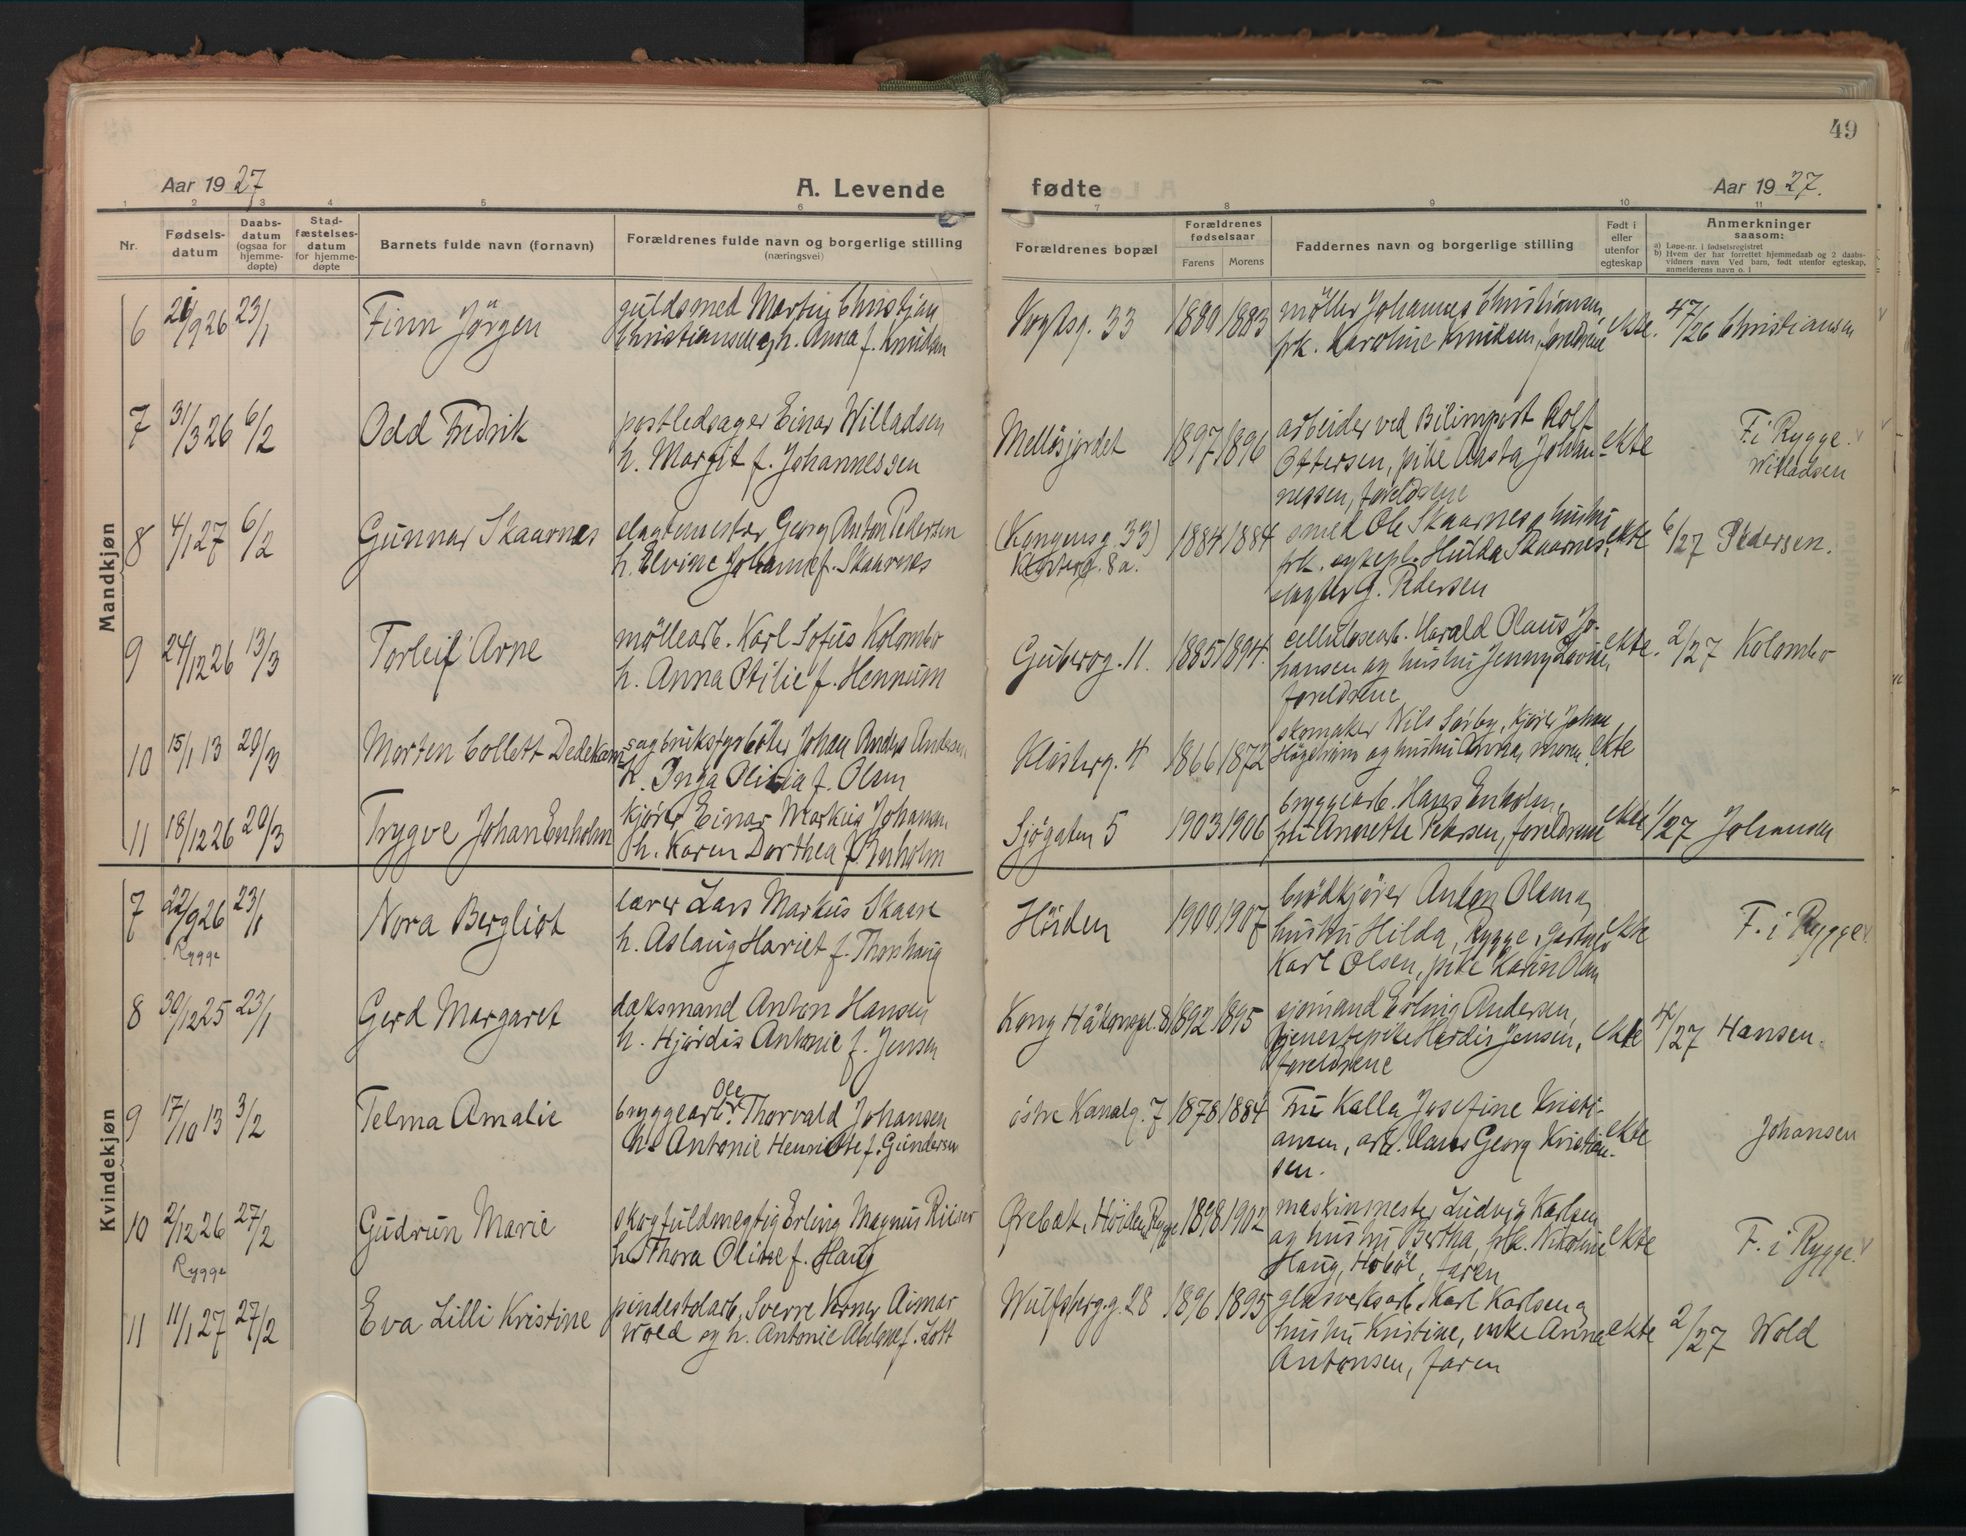 49
Aar 1927
A. Levende fødte
Aar 1927.
1 2 3 4 5 6 7 8 9 10 11
Nr.
Fødsels-datum
Daabs-datum (ogsaa for hjemme-døpte)
Stad-fæstelses-datum for hjemme-døpte
Barnets fulde navn (fornavn)
Forældrenes fulde navn og borgerlige stilling
(næringsvei)
Forældrenes bopæl
Forældrenes fødselsaar
Farens Morens
Faddernes navn og borgerlige stilling
Født i eller utenfor egteskap
Anmerkninger
saasom:
a) Løpe-nr. i fødselsregistret
b) Hvem der har forrettet hjemmedaab og 2 daabs-
vidners navn Ved barn, født utenfor egteskap,
anmelderens navn o. l
Mandkjøn
6 /9 26 23/1 Finn Jörgen
guldsmed Martin Christian
Christiansen og h. Anna f. Knudsen
Vogtsg. 33 1880 1883
møller Johannes Christiansen,
frk. Karoline Knudsen, foreldrene
ekte. 47/26 Christiansen
7 31/3 26 6/2 Odd Fredrik
postledsager Einar Willadsen
h. Margit f. Johannessen
Mellösjordet 1897 1896
arbeider ved Bilimport Rolf
Ottersen, pike Aasta Johan-
nessen, foreldrene
ekte F. i Rygge.
Willadsen
8 4/1 27 6/2 Gunnar Skaarnes
slagtermester Georg Anton Pedersen
h. Elvine Johanne f. Skaarnes
(Kongensg. 33)
Klosterg. 8a. 1884 1884
smed Ole Skaarnes og hustru
frk. Hulda Skaarnes,
slagter G. Pedersen
ekte 6/27 Pedersen.
9 24/12 26 13/3 Torleif Arne
møllearb. Karl Sofus Kolombo
h. Anna Otilie f. Hennum
Guberog. 11. 1885 1894.
cellulosearb. Harald Olaus Jo-
hansen og hustru Jenny Lovise,
foreldrene
ekte. 2/27 Kolombo
10 15/1 13 20/3 Morten Collett Dedekam
sagbruksfyrböter Johan Anders Andersen
h. Inga Olivia f. Olsen
Klosterg. 4 1866 1872
skomaker Nils Sørby, kjører Johan
og hustru Anna, moren
ekte
11 18/12 26 20/3 Trygve Johan Enholm
kjører Einar Markus Johansen
h. Karen Dorthea f. Enholm
Sjögaten 5 1903 1906
bryggearb. Hans Enholm,
fru Annette Petersen, foreldrene
ekte 1/27 Johansen
Kvindekjøn
7 22/9 26 23/1 Nora Bergliot
Rygge
lærer Lars Markus Skaare
h. Aslaug Hariet f. Thorshaug
Höiden 1900 1907
brödkjører Anton Olsen og
hustru Hilda, Rygge,
Karl Olsen, pike Karin Olsen
ekte F. i Rygge
8 30/12 25 23/1 Gerd Margaret
dæksmand Anton Hansen
h. Hjördis Antonie f. Jensen
Kong Håkonspl. 8 1892 1895
sjømand Erling Andersen,
tjenestepike Herdis Jensen,
foreldrene
ekte 4/27 Hansen.
9 17/10 13 3/2 Telma Amalie
bryggearb. Ole Thorvald Johansen
h. Antonie Henriette f. Gundersen
östre Kanalg. 7 1878 1884
Fru Kalla Josefine Kristi-
ansen, arb. Hans Georg Kristian-
sen.
ekte Johansen
10 2/12 26 27/2 Gudrun Marie
Rygge
skogfuldmegtig Erling Magnus Riiser
h. Thora Oline f. Haug
Ørebæk, Höiden, Rygge 1898 1902
maskinmester Ludvig Karlsen
og hustru Bertha, frk. Nikoline
Haug, Hobøl, faren
ekte F. i Rygge.
11 11/1 27 27/2 Eva Lilli Kristine
pindestolarb. Sverre Verner Aimar
Wold og h. Antonie f. Lott
Wulfsbergg. 28 1896 1895
glasverksarb. Karl Karlsen og
hustru Kristine, enke Anna
Antonsen, faren
ekte 2/27 Wold